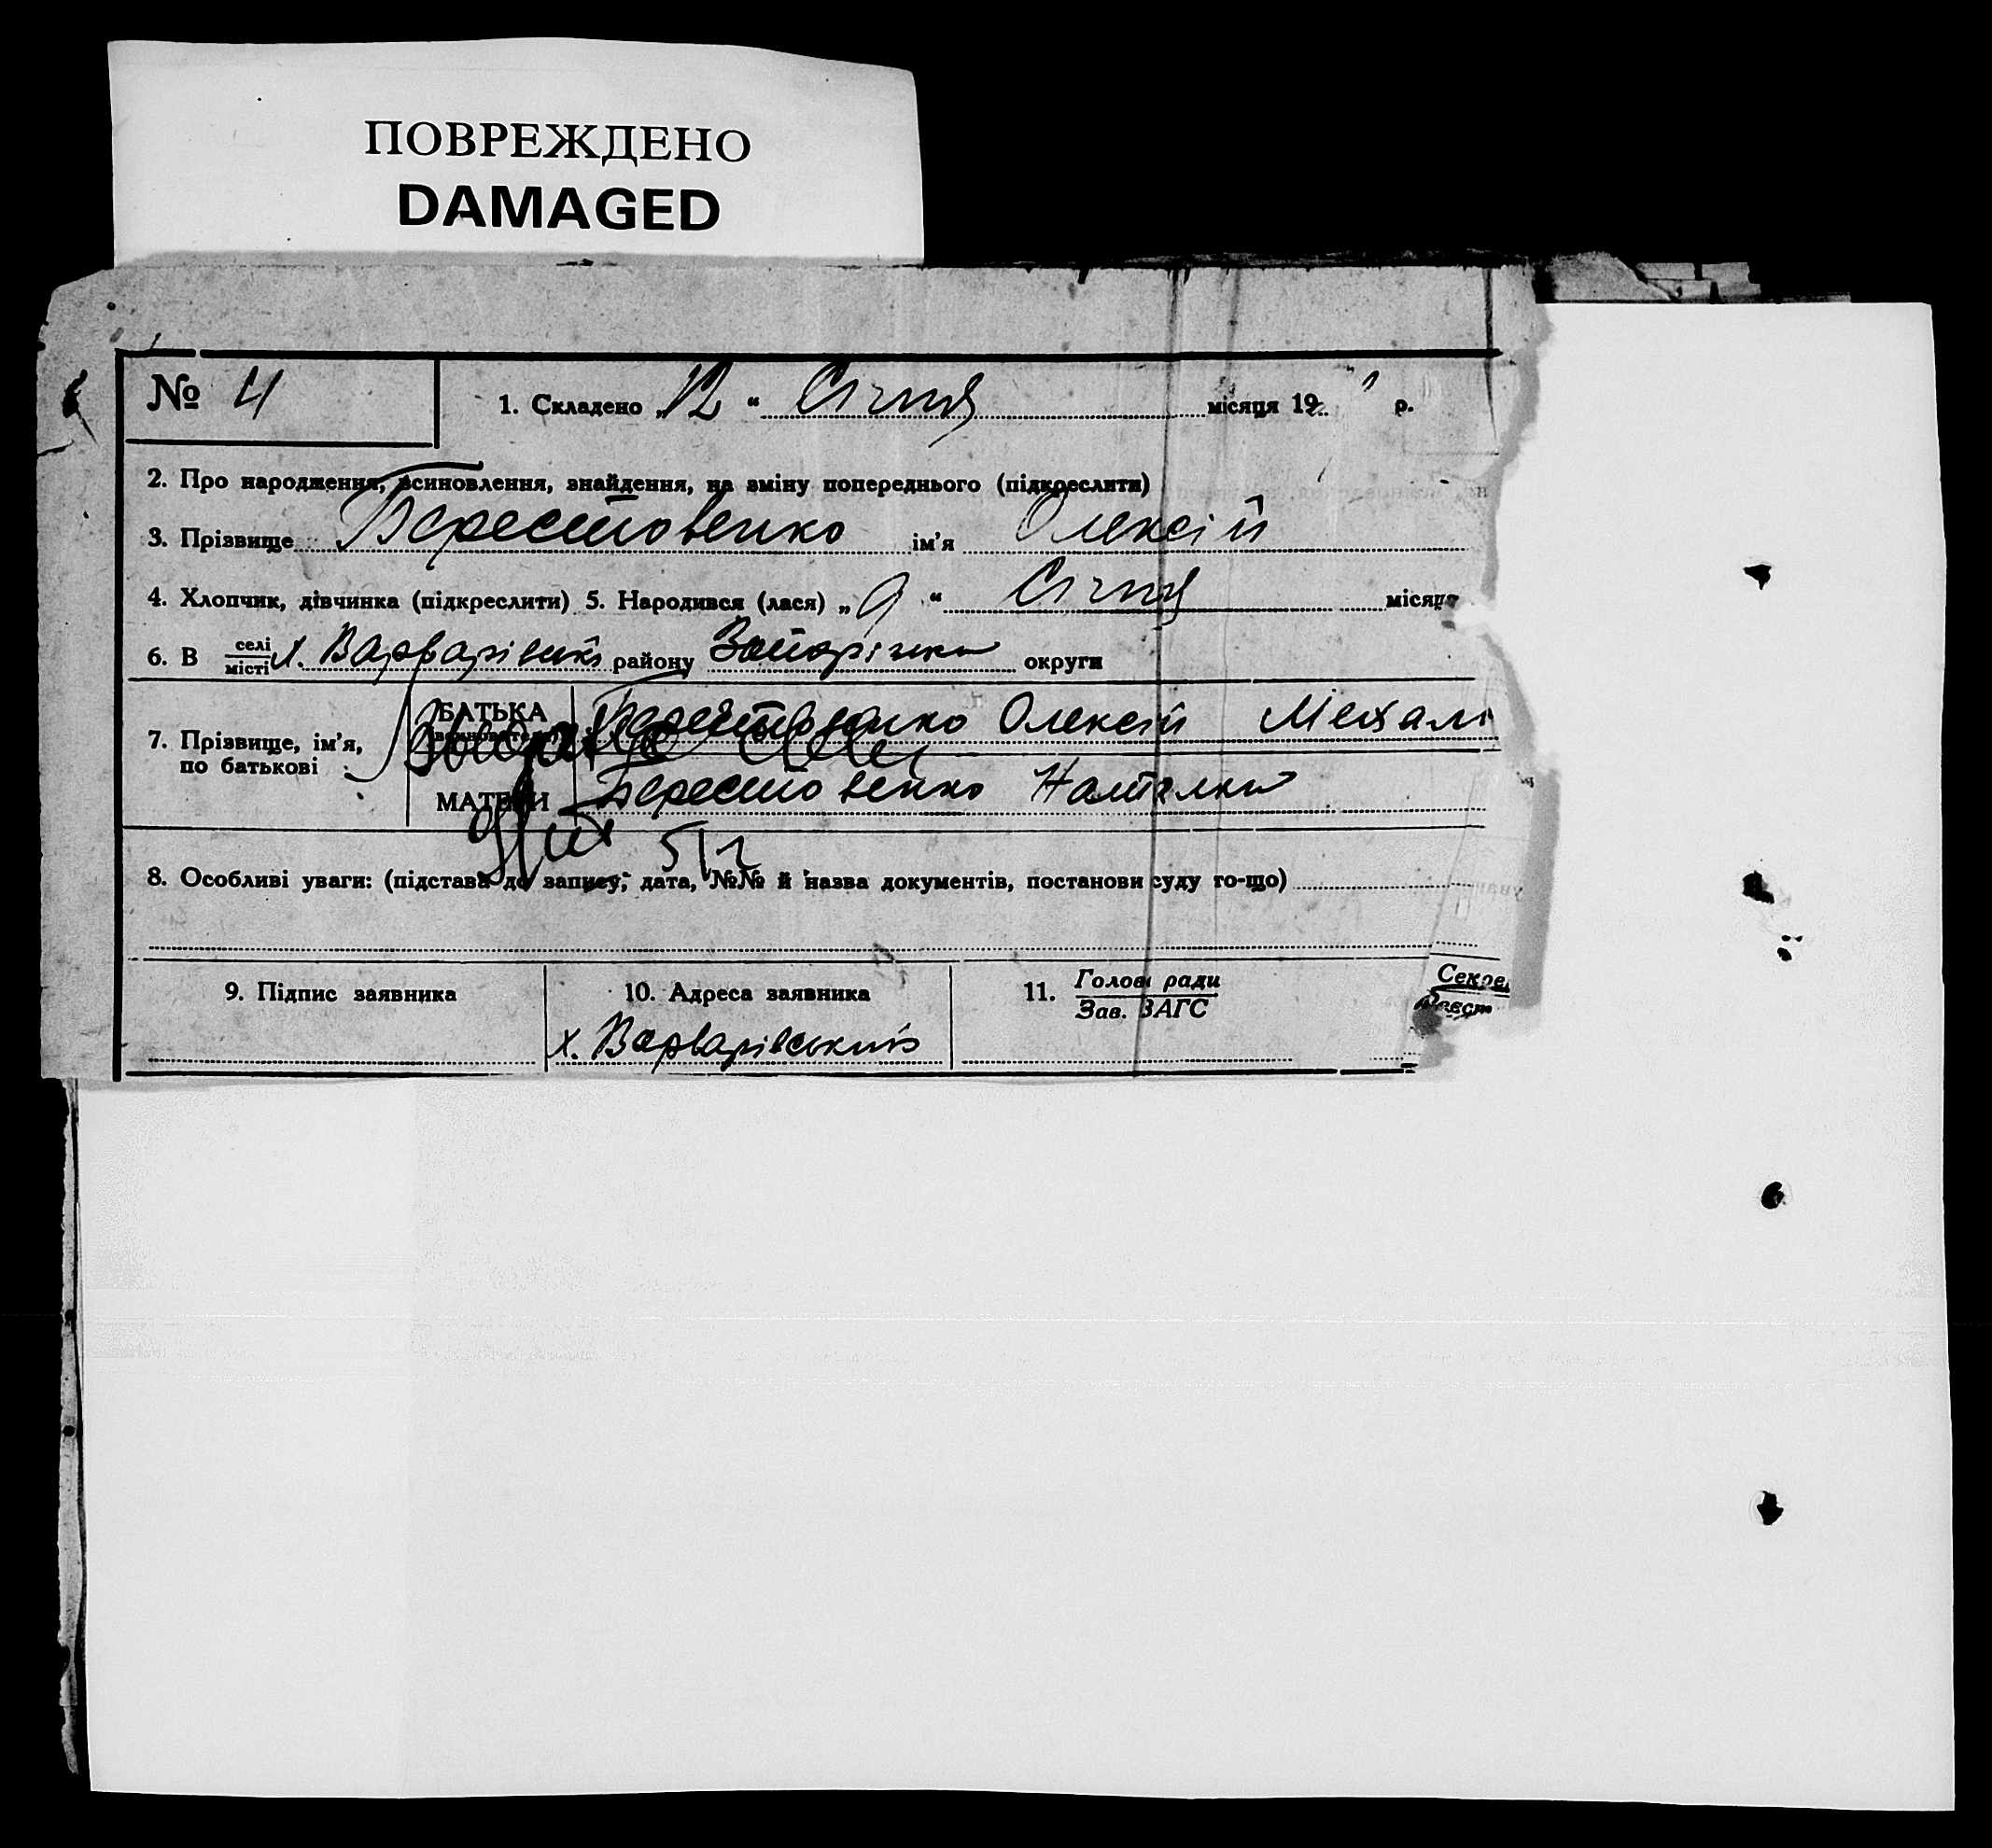 ПОВРЕЖДЕНО
DAMAGED
№ 4
1. Складено „12“ Січня місяця 19 р.
2. Про народження, всиновлення, знайдення, на зміну попереднього (підкреслити)
3. Прізвище Берестовенко ім’я Олексій
4. Хлопчик, дівчинка (підкреслити) 5. Народився (лася) „9“ Січня місяця
6. В селі місті х. Варварівський району округи
7. Прізвище, ім’я, по батькові
БАТЬКА Берестовенко Олексій
МАТЕРИ Берестовенко Наталка
8. Особливі уваги: (підстава до запису, дата, №№ й назва документів, постанови суду то-що)
9. Підпис заявника
10. Адреса заявника
11. Голова ради
Зав. ЗАГС
х. Варварівський